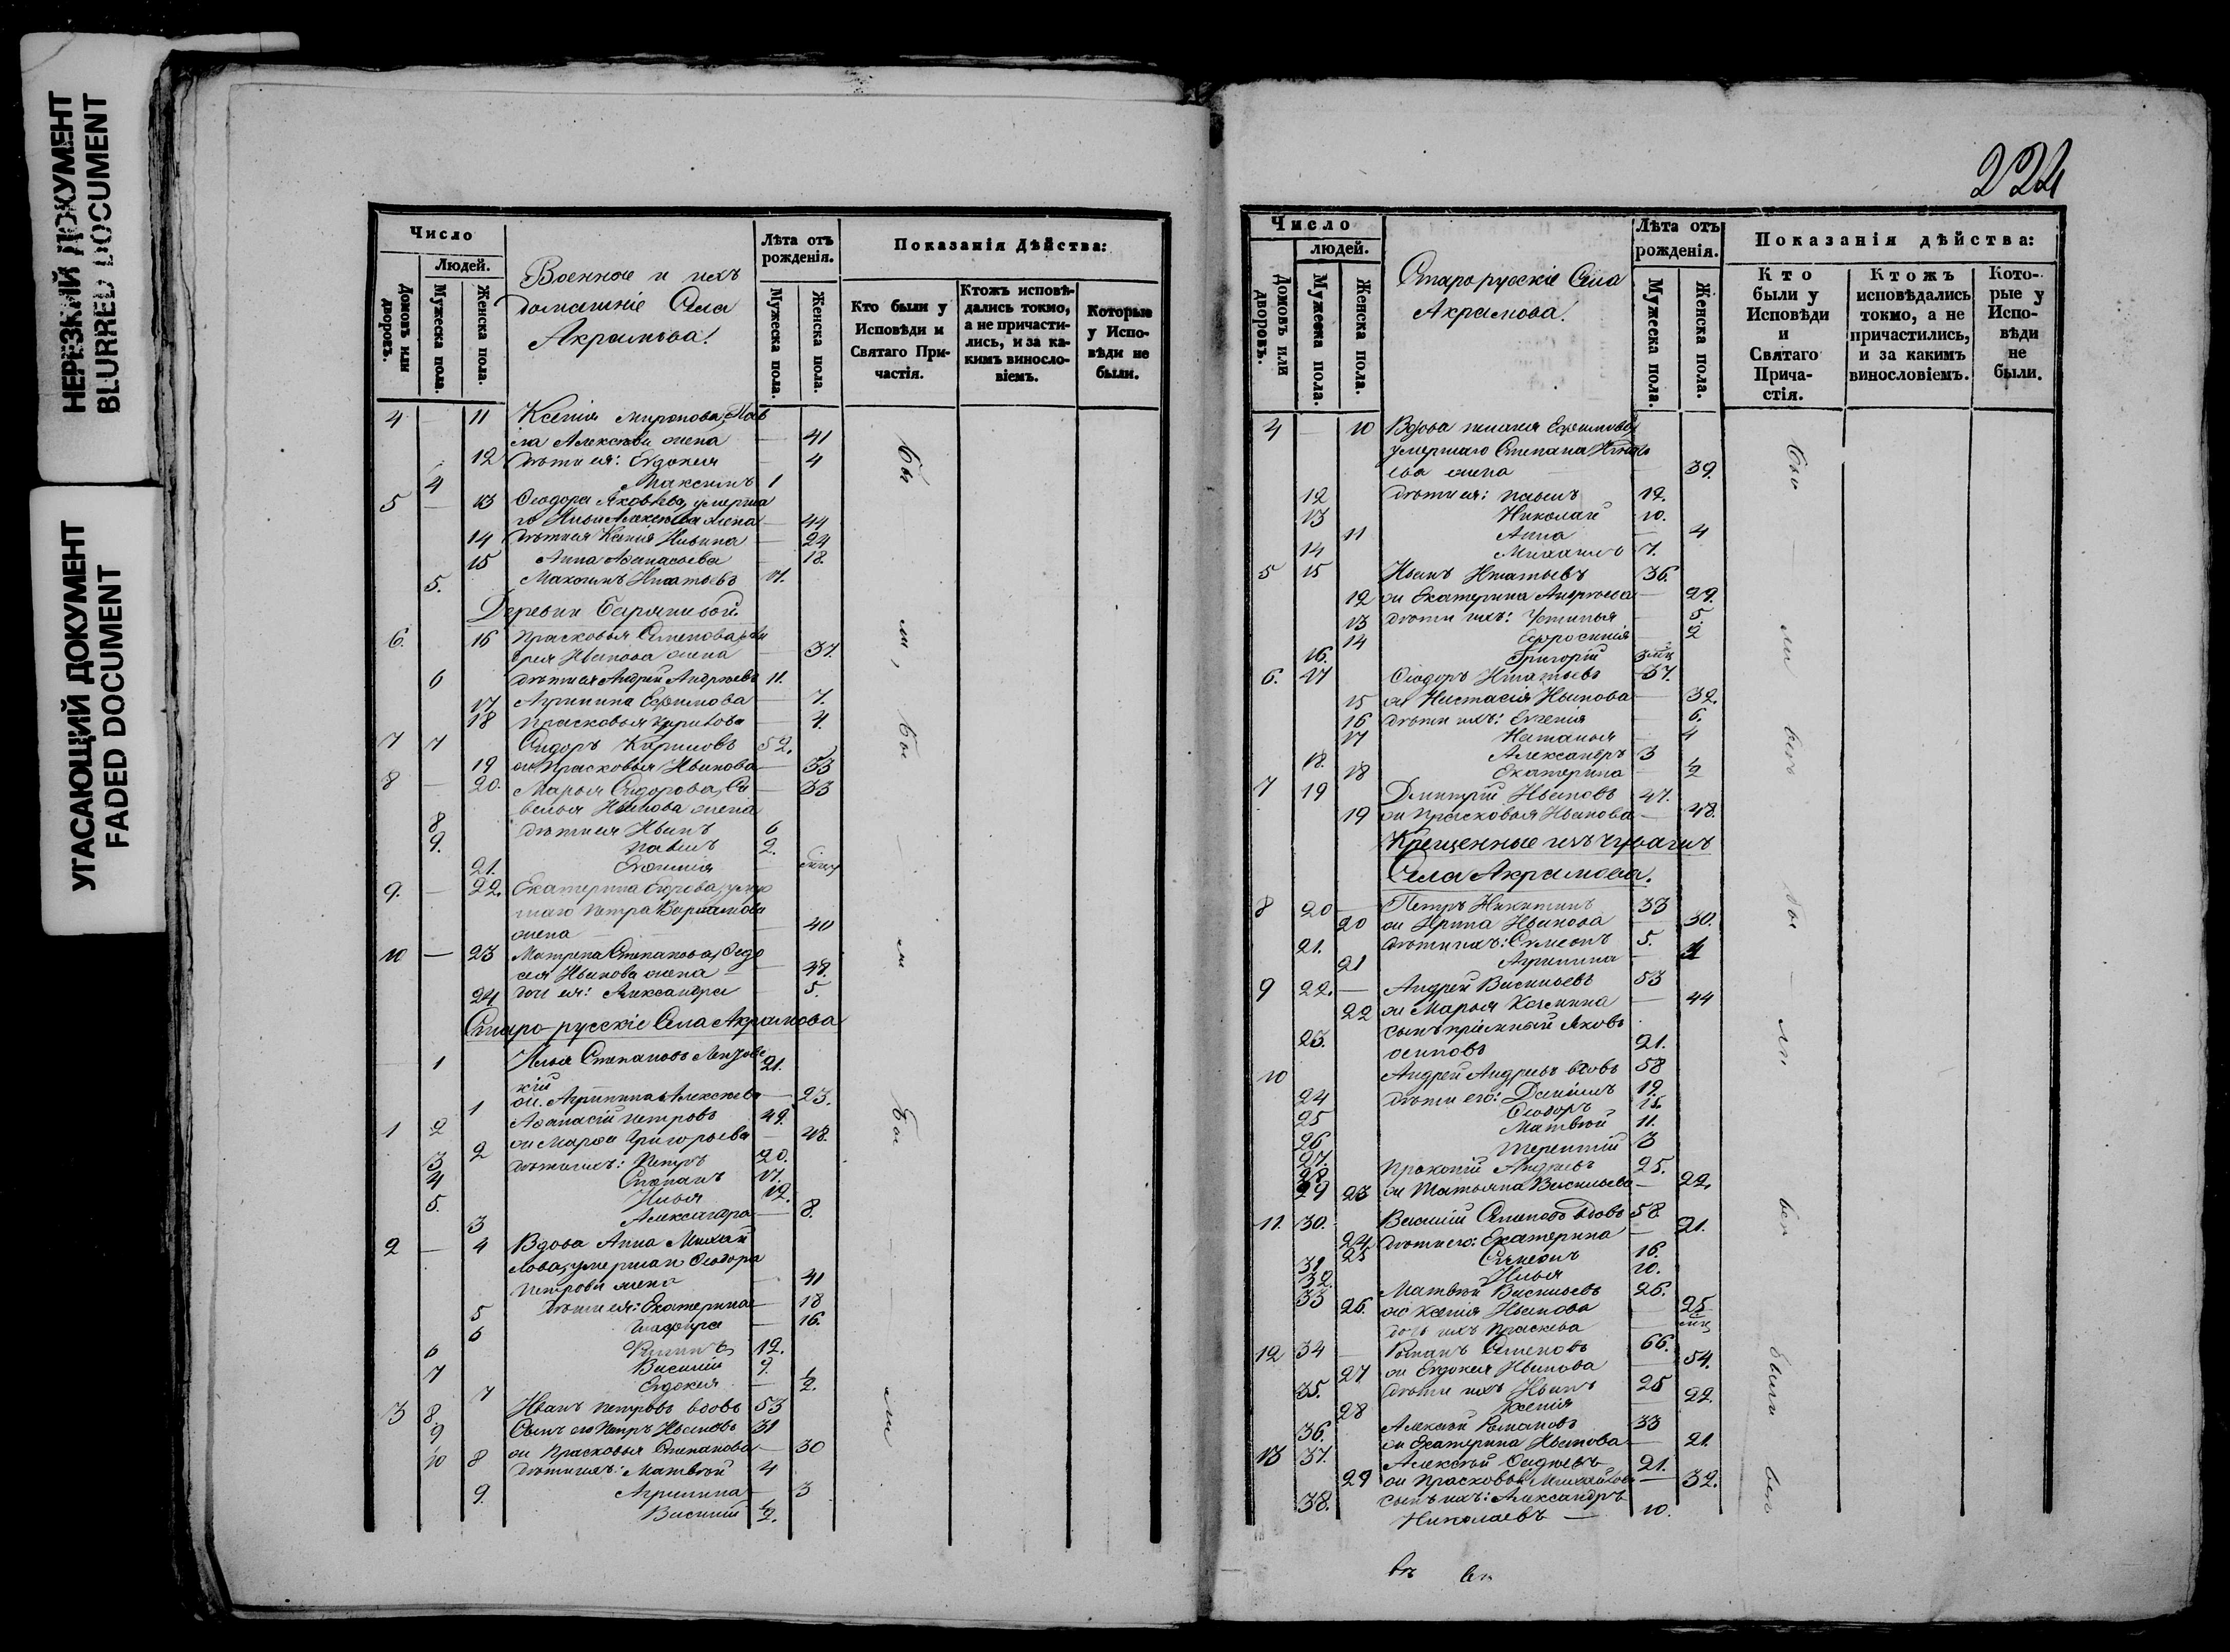 НЕРЕЗКИЙ ДОКУМЕНТ
BLURRED DOCUMENT
УГАСАЮЩИЙ ДОКУМЕНТ
FADED DOCUMENT
Число
Людей.
Домовъ или дворовъ.
Мужеска пола.
Женска пола.
Военное и ихъ
домашніе Села
Акрамова.
Лѣта отъ рожденія.
Мужеска пола.
Женска пола.
Показанія Дѣйства:
Кто были у Исповѣди и Святаго Причастія.
Ктожъ исповѣдались токмо, а не причастились, и за какимъ винословіемъ.
Которые у Исповѣди не были.
4 — 11 Ксенія Миронова, Пав
ла Алексѣева жена — 41
12 дѣти ея: Евдокия — 4
4 Максимъ 1
5 — 13 Ѳеодора Яковлева, умерша
го Ильи Алексѣева жена — 44
14 дѣти ея Ксенія Ильина — 24
15 Анна Аѳанасьева — 18.
5. Максимъ Игнатьевъ 17.
Деревни
6. 16 Прасковья Семенова,
Иванова жена — 37.
6 дѣти ея Андрей Андреевъ 11.
17 Агрипина Ефимова — 7.
18 Прасковья — 4.
7 7 Сидоръ Кириловъ 52.
19 ж. Прасковья Иванова — 53
8 — 20. Марья Сидорова, Са — 33
велья Иванова жена
8 дѣти ея Иванъ 6
9. Павелъ 2.
21. Евфимія
9. — 22. Екатерина Егорова, умер
шаго Петра
жена — 40
10 — 23 Матрена Степанова, Ѳедо
сея Иванова жена — 48.
24. дочь ея: Александра — 5.
Старо-русскіе Села Акрамова
1 Илья Степановъ
кій 21.
1 ж. Агрипина Алексѣева — 23.
1 2 Аѳанасій Петровъ 49.
2 ж. Марѳа Григорьева — 48.
3 дѣти ихъ: Петръ 20.
4 Степанъ 17.
5. Илья 12.
3 Александра — 8.
2 — 4 Вдова Анна Михай
лова, умершаго Ѳеодора
Петрова жена — 41
5 дѣти ея: Екатерина — 18
6 Глафира — 16.
6 12.
7 Василій 9.
7 Евдокия — ½.
3 8. Иванъ Петровъ вдовъ 53
9 Сынъ его Петръ Ивановъ 31
8 ж. Прасковья Степанова — 30
10 дѣти ихъ: Матвѣй 4
9. Агрипина — 3
Василій ½.
224
Число
людей.
Домовъ или дворовъ.
Мужеска пола.
Женска пола.
Старорусскіе Села
Акрамова.
Лѣта отъ рожденія.
Мужеска пола.
Женска пола.
Показанія дѣйства:
Кто были у Исповѣди и Святаго Причастія.
Ктожъ исповѣдались токмо, а не причастились, и за какимъ винословіемъ.
Которые у Исповѣди не были.
4 — 10 Вдова Ефимова
умершаго Степана Игнать
ева жена — 39.
12 дѣти ея: Павелъ 12.
13 Николай 10.
11 Анна — 4
14 Михаилъ 7.
5 15 Иванъ Игнатьевъ 36.
12 ж. Екатерина Андреева — 29.
13 дѣти ихъ: Устинья — 5.
14 Ефросинія — 2
16. Григорій 3 мѣц
6. 17 Ѳеодоръ Игнатьевъ 37.
15 ж. Настасія Иванова — 32.
16 дѣти ихъ: Евгенія — 6.
17 Наталья — 4
18. Александръ 3
18 Екатерина — ½
7 19 Дмитрій Ивановъ 47.
19 ж. Прасковья Иванова — 48.
Крещенные изъ чувашъ
Села Акрамова.
8 20 — Петръ Никитинъ 33
20 ж. Ирина Иванова — 30.
21. дѣти ихъ: Симеонъ 5.
21 Агрипина — 1
9 22. — Андрей Васильевъ 53
22 ж. Марья Козмина — 44
23. сынъ пріемный Яковъ
Осиповъ 21.
10 Андрей Андреевъ вдовъ 58
24 дѣти его: Даніилъ 19.
25 Ѳеодоръ 15.
26 Матвѣй 11.
27. Терентій 3
28 Прокопій Андреевъ 25.
29 23 ж. Татьяна Васильева — 22.
11. 30. Василій Семеновъ вдовъ 58.
24 дѣти его: Екатерина — 21.
31 25 Симеонъ 16.
32. Илья 10.
33 Матвѣй Васильевъ 26.
26. ж. Ксенія Иванова — 25
дочь ихъ Праскева
12 34 — Романъ Семеновъ 66.
27 ж. Евдокия Иванова — 54.
35. дѣти ихъ Иванъ 25
28 Ксенія — 22.
36. Алексѣй Романовъ 33
ж. Екатерина Иванова — 21.
13 37. Алексѣй 21.
29 ж. Прасковья Михайлова — 32.
38. сынъ ихъ: Александръ
Николаевъ — 10.